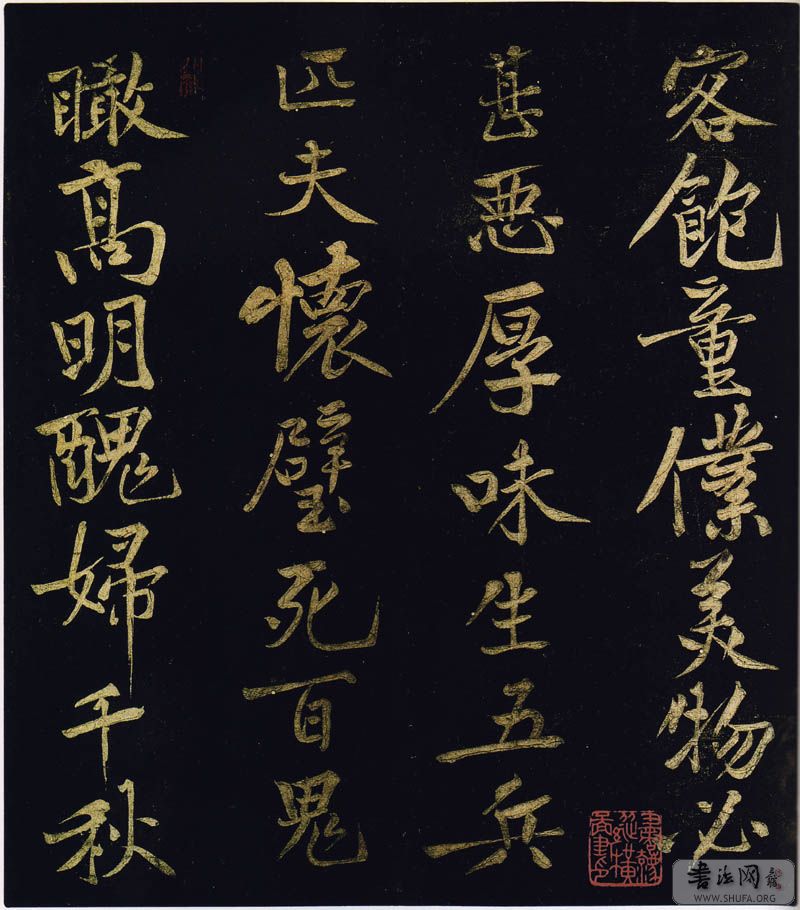 客飽童僕美物必
甚惡厚味生五兵
匹夫懷璧死百鬼
瞰高明醜婦千秋
書法网
WWW.SHUFA.ORG